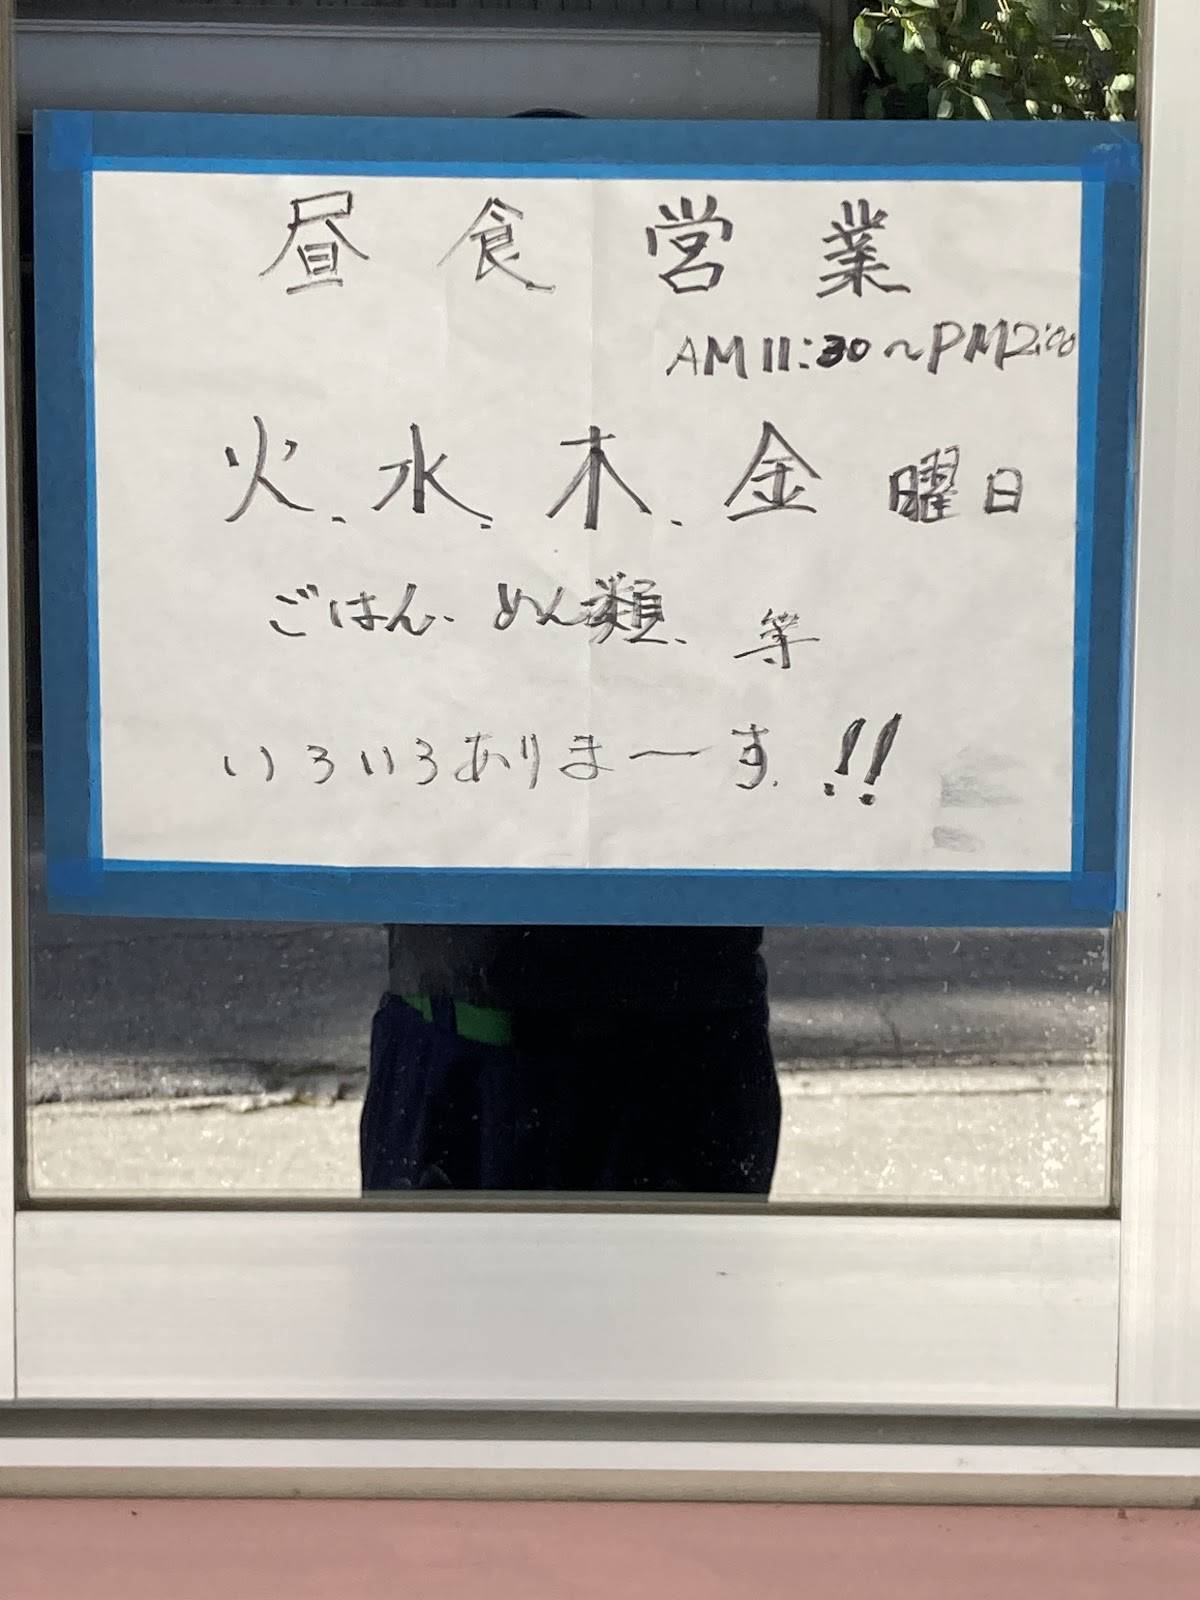 昼食営業
AM11:30～PM2:00
火、水、木、金曜日
ごはん、めん類、等
いろいろありまーす!!